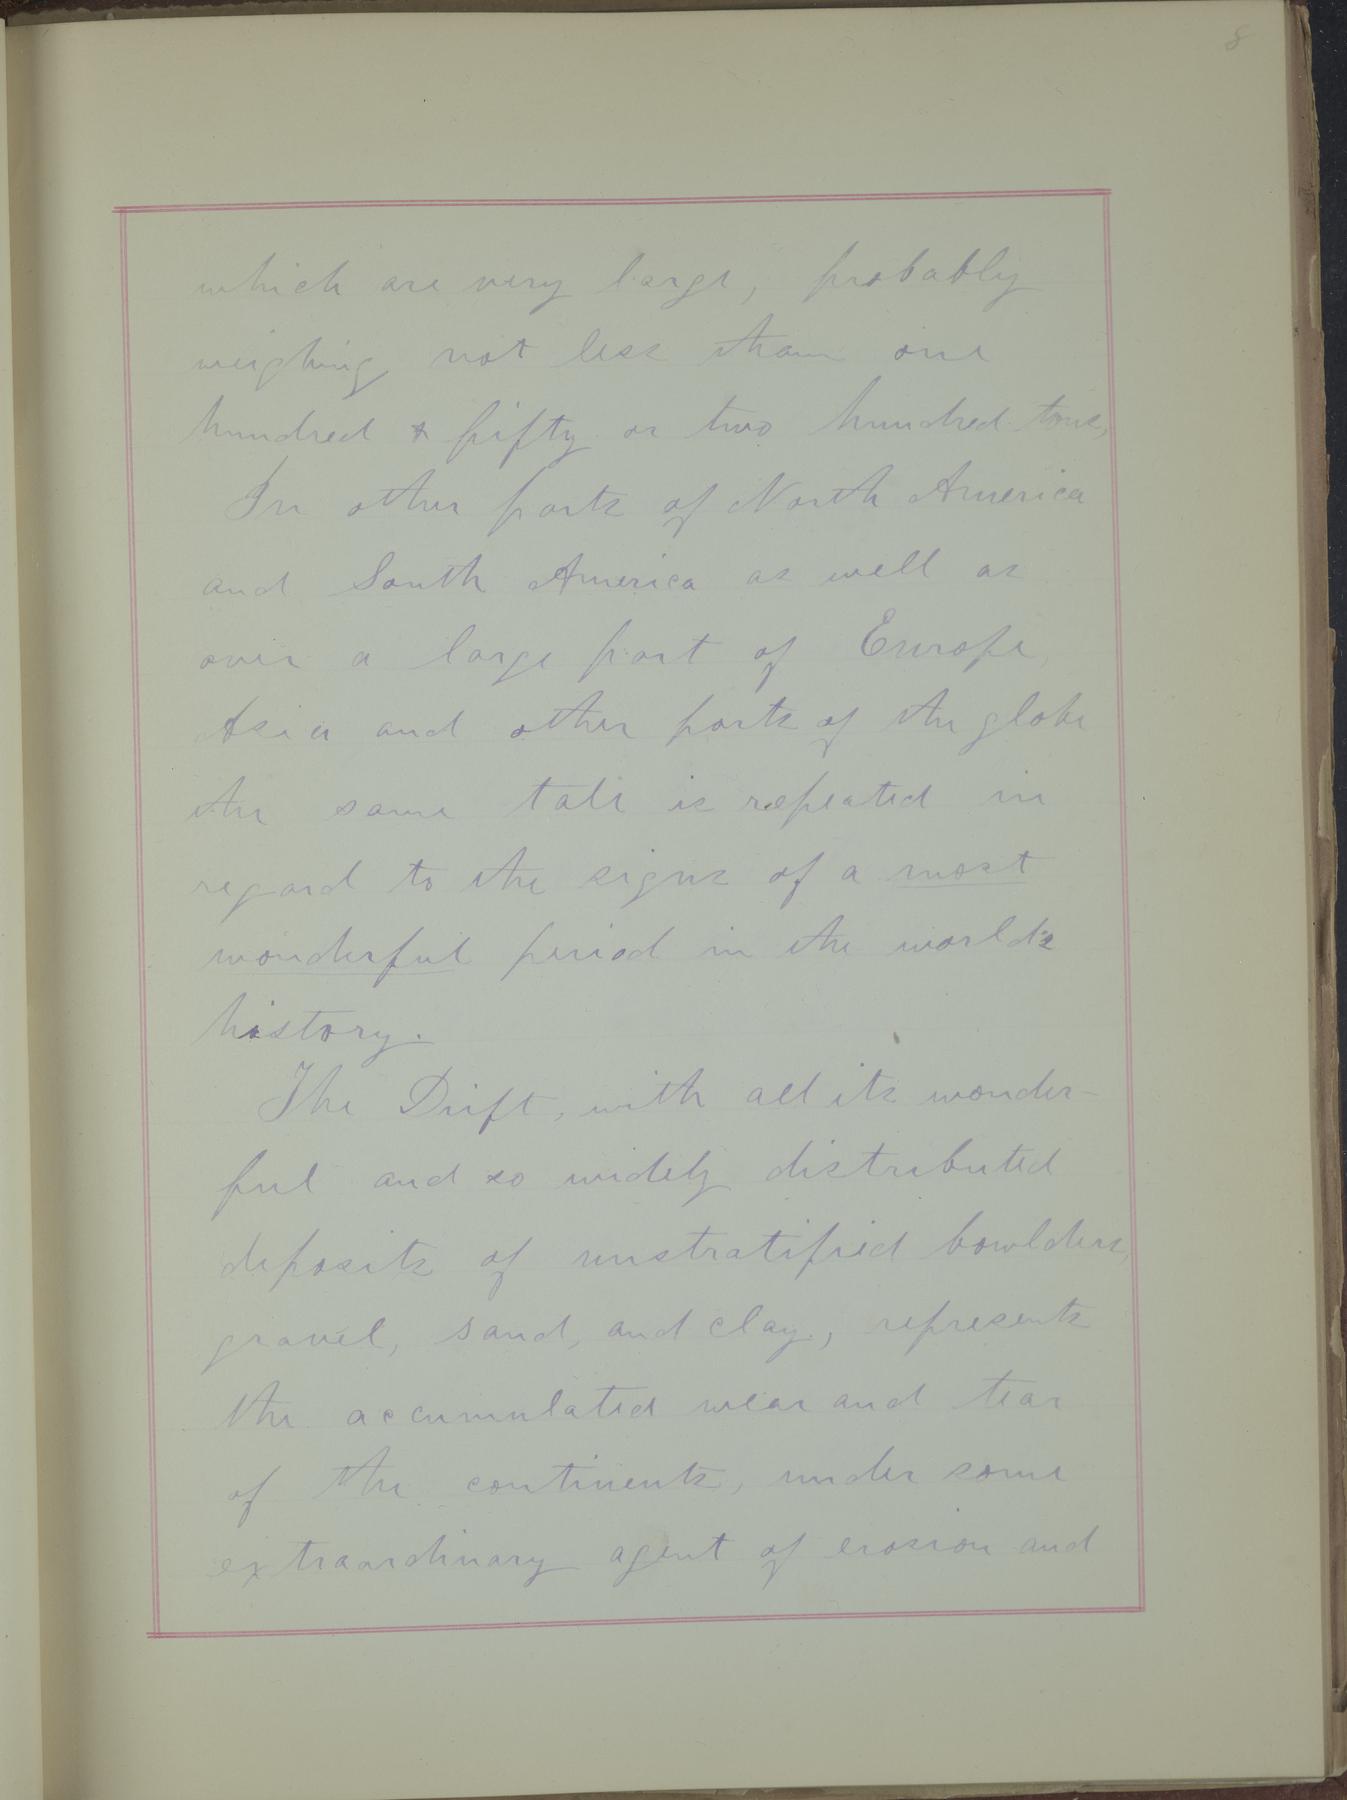 8
which are very large, probably
weighing not less than one
hundred & fifty or two hundred tons,
In other parts of North America
and South America as well as
over a large part of Europe,
Asia and other parts of the globe
the same tale is repeated in
regard to the signs of a most
wonderful period in the world's
history.
The Drift, with all its wonder-
ful and so widely distributed
deposits of unstratified bowlders,
gravel, sand, and clay, represents
the accumulated wear and tear
of the continents, under some
extraordinary agent of erosion and